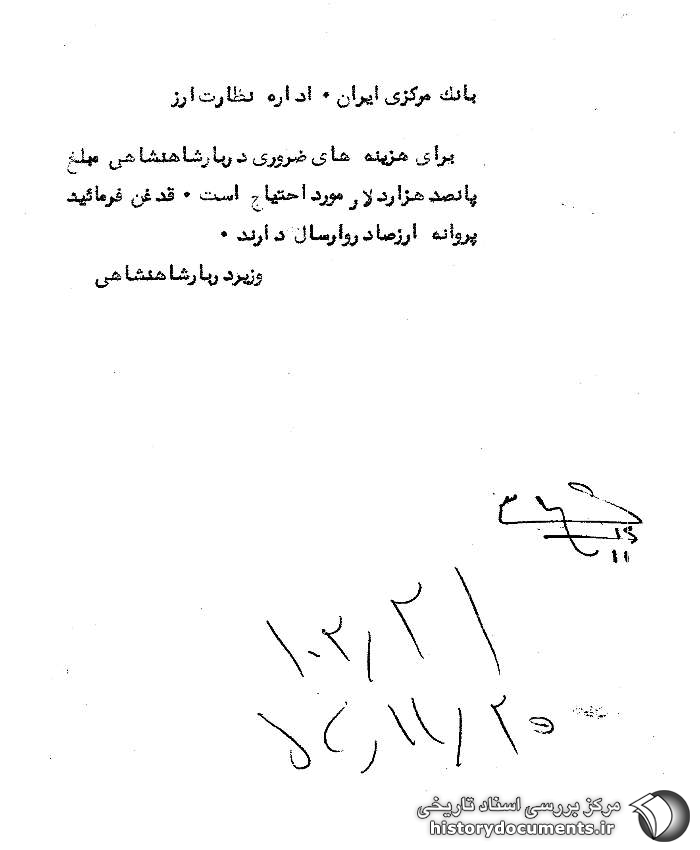 بانك مرکزی ایران • اداره نظارت ارز
برای هزینه های ضروری دربار شاهنشاهی مبلغ
پانصد هزار دلار مورد احتیاج است • قدغن فرمائید
پروانه ارز صادر و ارسال دارند •
وزیر دربار شاهنشاهی
۱۱
مرکز بررسی اسناد تاریخی
historydocuments.ir